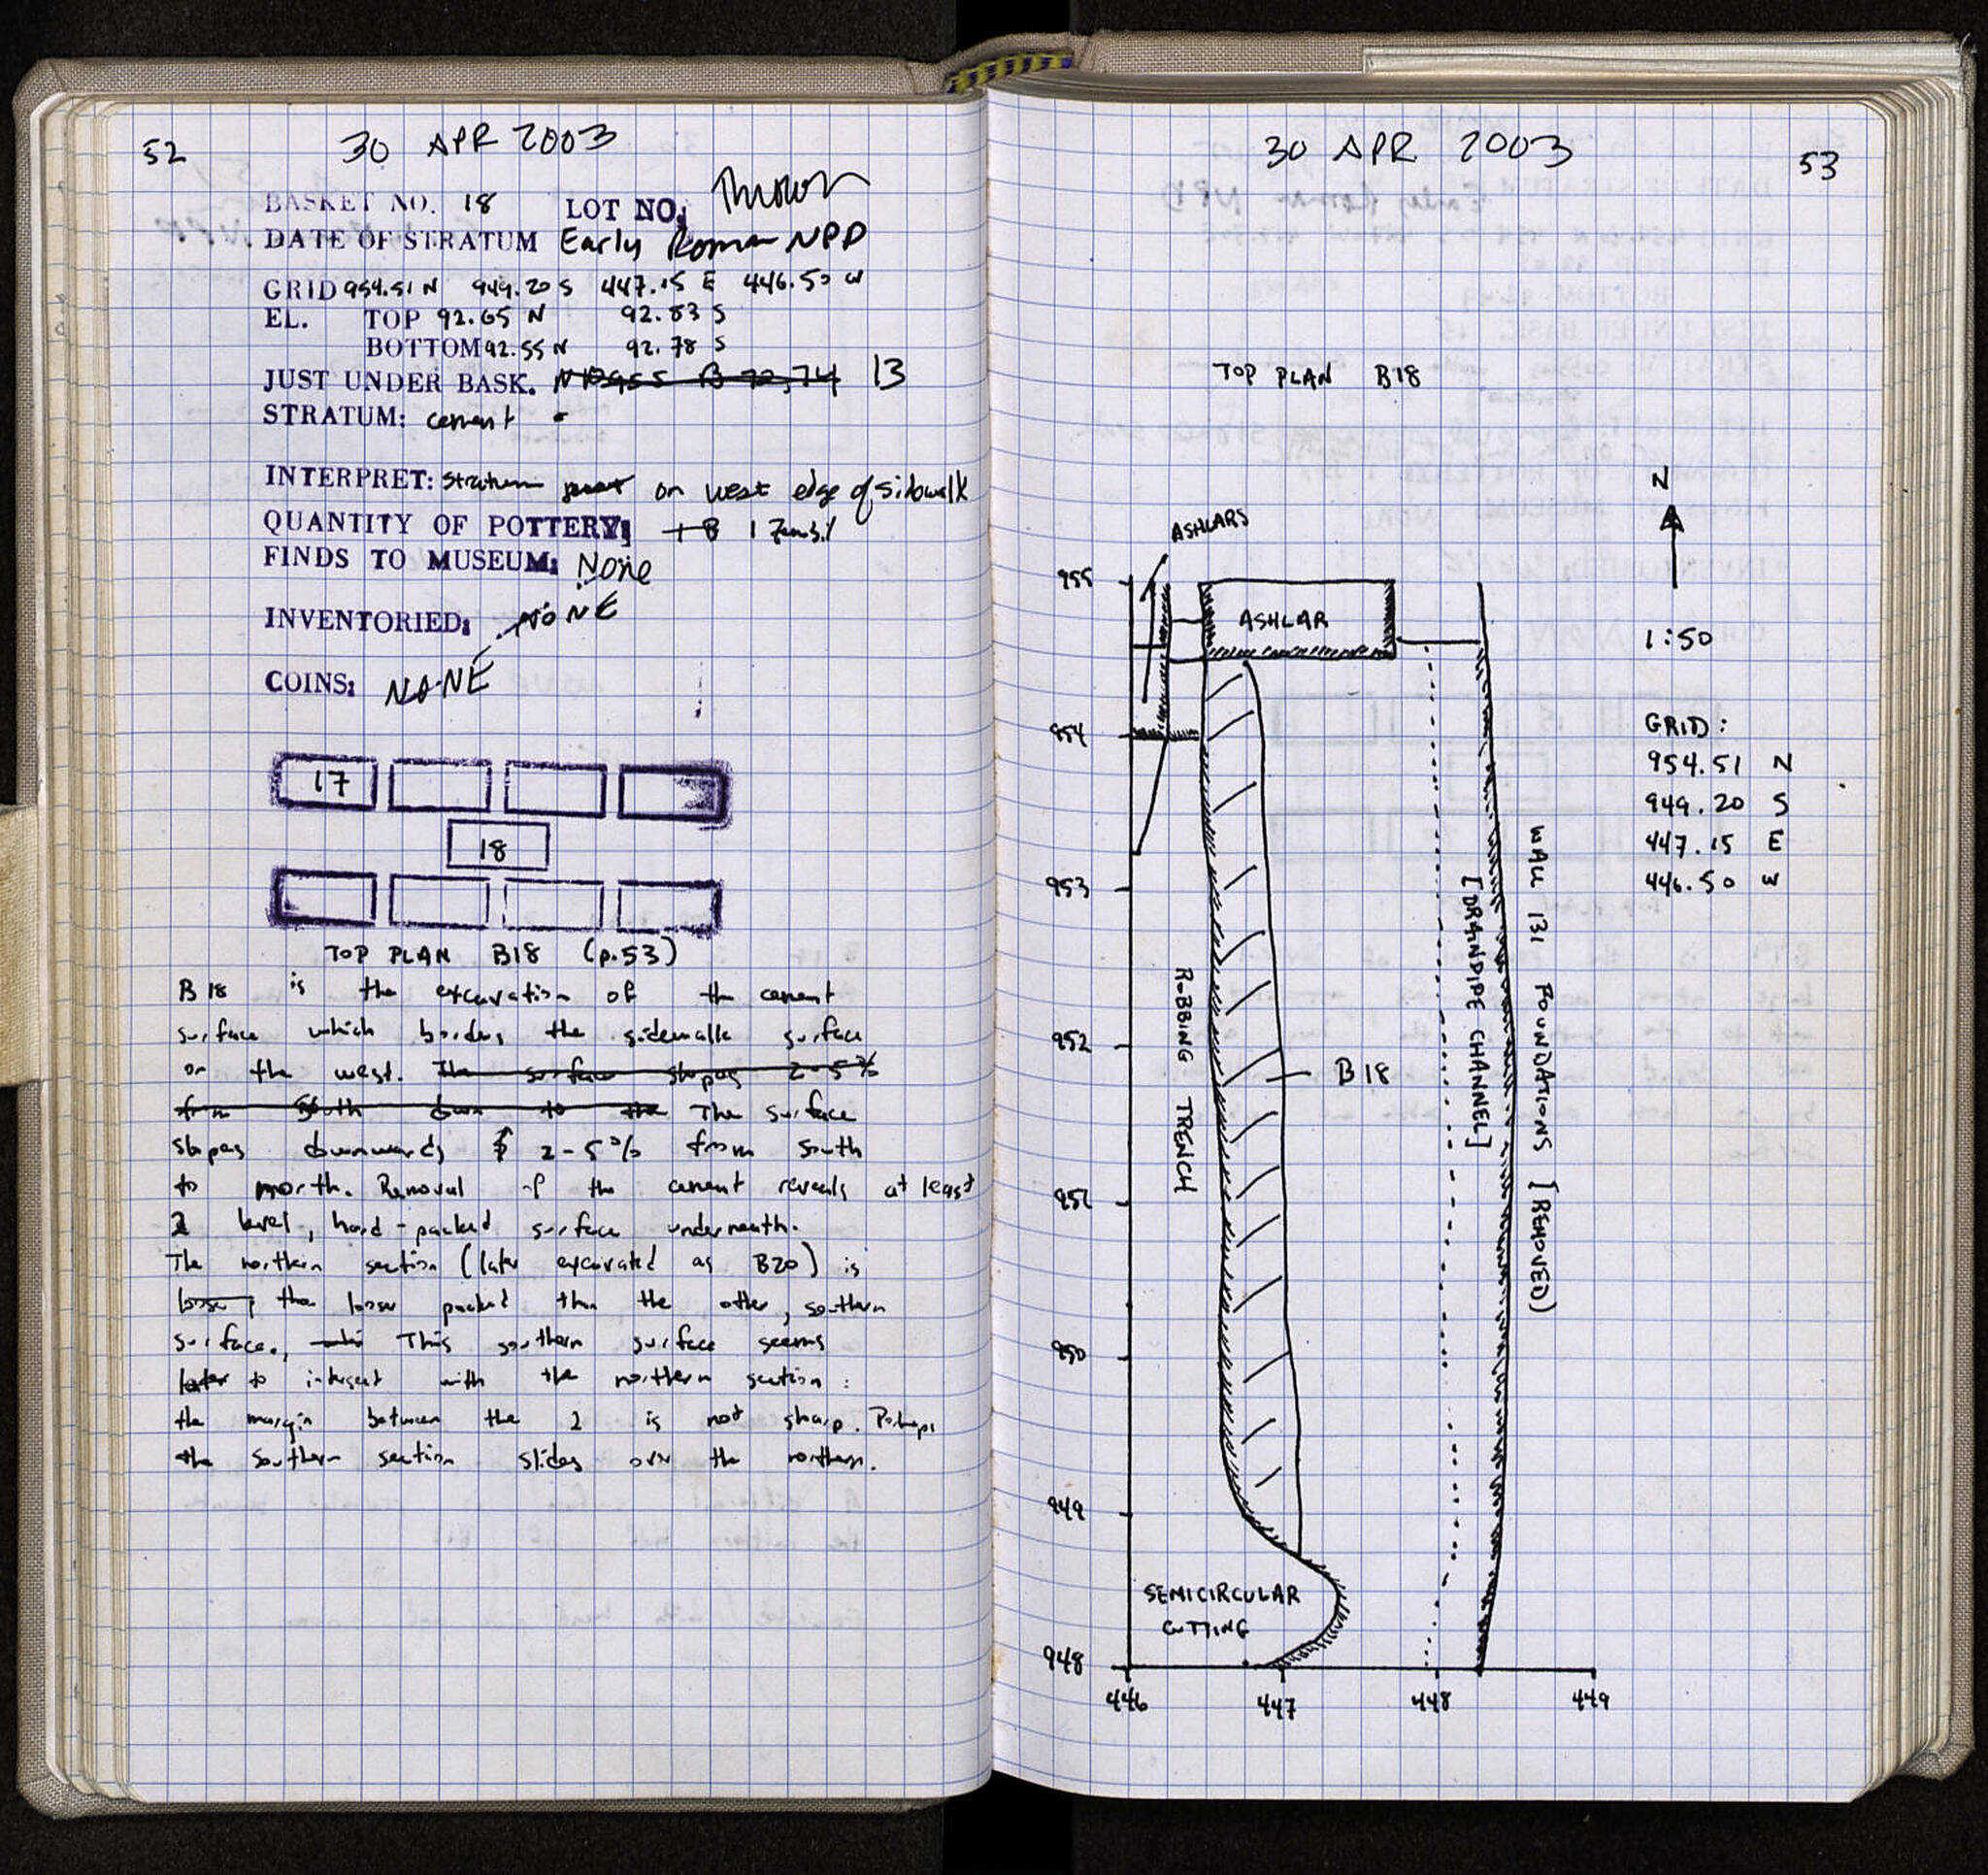 52
30 APR 2003
BASKET NO. 18 LOT NO: Thrown
DATE OF STRATUM Early Roman NPD
GRID 954.51 N 949.20 S 447.15 E 446.50 W
EL. TOP 92.65 N 92.83 S
BOTTOM 92.55 N 92.78 S
JUST UNDER BASK. 13
STRATUM: cement
INTERPRET: stratum on west edge of sidewalk
QUANTITY OF POTTERY:
FINDS TO MUSEUM: None
INVENTORIED: NONE
COINS: NONE
17
18
TOP PLAN B18 (p.53)
B18 is the excavation of the cement
surface which borders the sidewalk surface
on the west. The surface slopes 2-5%
from South down to the The surface
slopes downwards 2-5% from south
to north. Removal of the cement reveals at least
2 level, hard-packed surface underneath.
The northern section (later excavated as B20) is
loose, the looser packed than the other, southern
surface., This southern surface seems
later to intersect with the northern section:
the margin between the 2 is not sharp. Perhaps
the southern section slides over the northern.
30 APR 2003
53
TOP PLAN B18
N
ASHLARS
955
ASHLAR
1:50
GRID:
954.51 N
949.20 S
447.15 E
446.50 W
954
953
952
951
950
949
948
ROBBING TRENCH
B18
[DRAINPIPE CHANNEL]
WALL 131 FOUNDATIONS [REMOVED)
SEMICIRCULAR
CUTTING
446
447
448
449